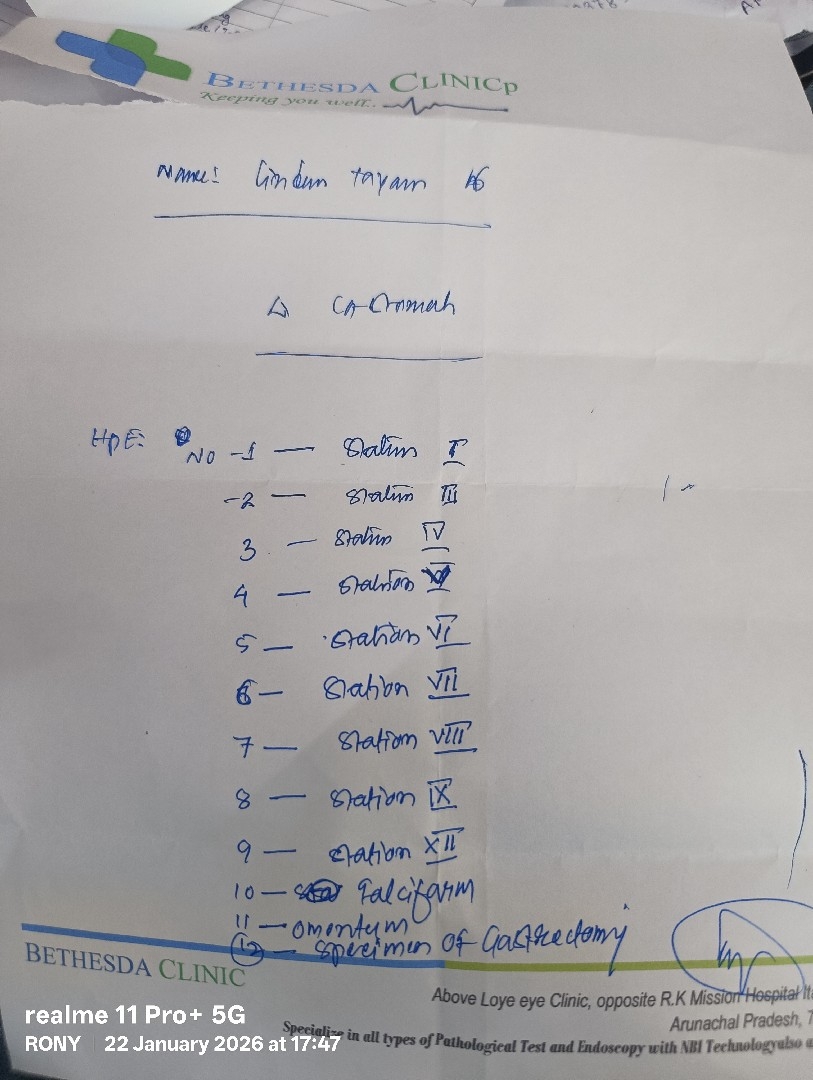 BETHESDA CLINICp
Keeping you well..
Name: tayam
HPE: NO -1 — Station I
-2 — Station III
3 — Station IV
4 — Station V
5 — Station VI
6 — Station VII
7 — Station VIII
8 — Station IX
9 — Station XII
10 — Falcifarm
11 — omentum
12 — Specimen OF Gastrectomy
BETHESDA CLINIC
Above Loye eye Clinic, opposite R.K Mission Hospital
Arunachal Pradesh, 7
Specialize in all types of Pathological Test and Endoscopy with NBI Technologyalso a
realme 11 Pro+ 5G
RONY 22 January 2026 at 17:47